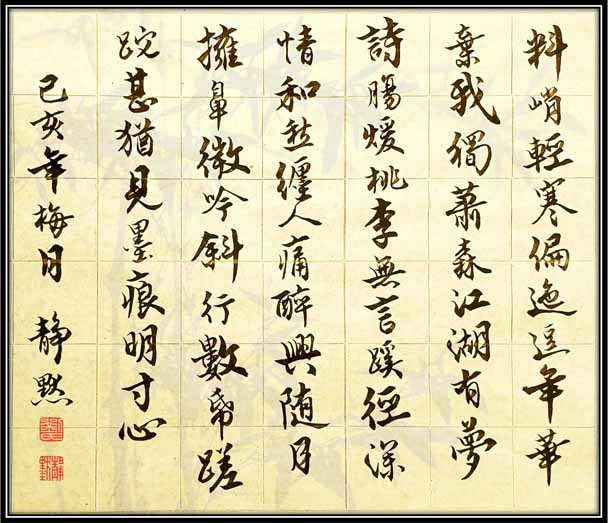 料峭輕寒偏迤逗年華
棄我獨蕭森江湖有夢
詩腸煖桃李無言蹊徑深
情和愁纏人痛醉興随月
擁鼻微吟斜行數帋蹉
跎甚猶見墨痕明寸心
己亥年梅月 靜默